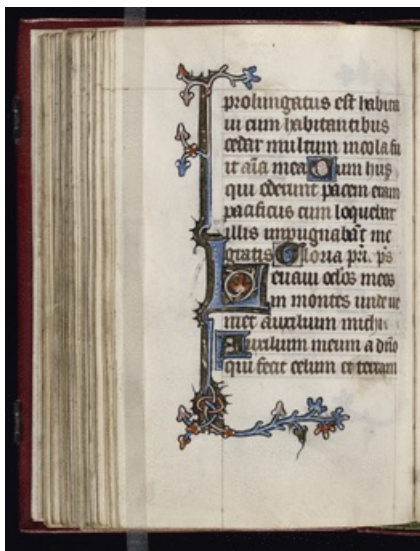 prolungatus est habita
ui cum habitantibus
cedar multum incola fu
it aīa mea Cum hus
qui oderunt pacem eram
pacificus cum loquebar
illis impugnabāt me
gratis Gloria pri. ps
Leuaui oclos meos
in montes unde ue
niet auxilium michi
Auxilium meum a dño
qui fecit celum et terram